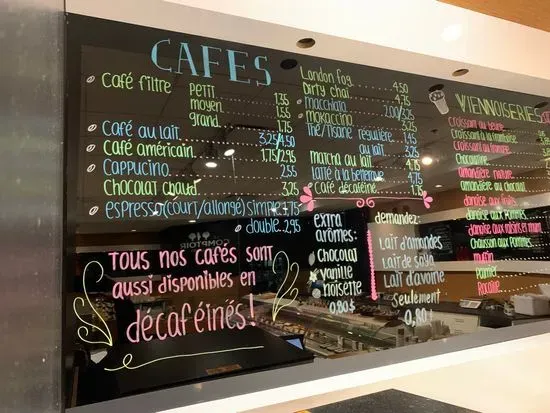 CAFÉS
Café filtre Petit 1.35
moyen 1.55
grand 1.75
Café au lait 3.25/4.50
Café américain 1.75/2.95
Cappucino 2.55
Chocolat chaud 3.25
espresso (court/allongé) simple
double 2.95
Tous nos cafés sont
aussi disponibles en
décaféinés!
London fog 4.50
Dirty chai 4.75
Macchiato
Mokaccino 3.75
Thé/Tisane régulière
au lait 3.25
Matcha au lait 4.75
Latté à la betterave 4.75
Café décaféiné 1.75
extra
arômes:
chocolat
vanille
noisette
0,80$
demandez:
Lait d'amandes
Lait de soya
Lait d'avoine
Seulement
0,80!
VIENNOISERIES
Croissant au beurre
Croissant à la framboise
Croissant au fromage
Chocolatine
amandière nature
amandière au chocolat
danoise aux fruits
danoise aux Pommes
danoise aux raisins et
Chausson aux Pommes
muffin
COMPTOIR